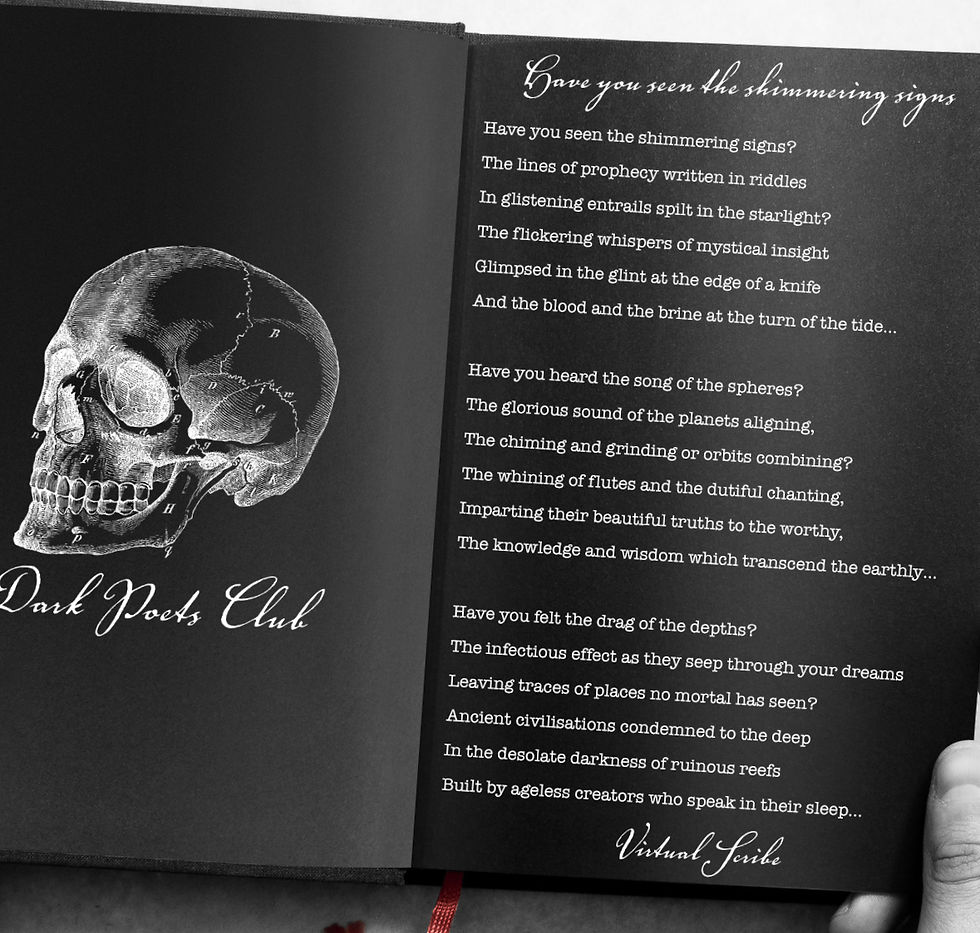 Dark Poets Club
Have you seen the shimmering signs
Have you seen the shimmering signs?
The lines of prophecy written in riddles
In glistening entrails spilt in the starlight?
The flickering whispers of mystical insight
Glimpsed in the glint at the edge of a knife
And the blood and the brine at the turn of the tide...
Have you heard the song of the spheres?
The glorious sound of the planets aligning,
The chiming and grinding or orbits combining?
The whining of flutes and the dutiful chanting,
Imparting their beautiful truths to the worthy,
The knowledge and wisdom which transcend the earthly...
Have you felt the drag of the depths?
The infectious effect as they seep through your dreams
Leaving traces of places no mortal has seen?
Ancient civilisations condemned to the deep
In the desolate darkness of ruinous reefs
Built by ageless creators who speak in their sleep...
Virtual Scribe